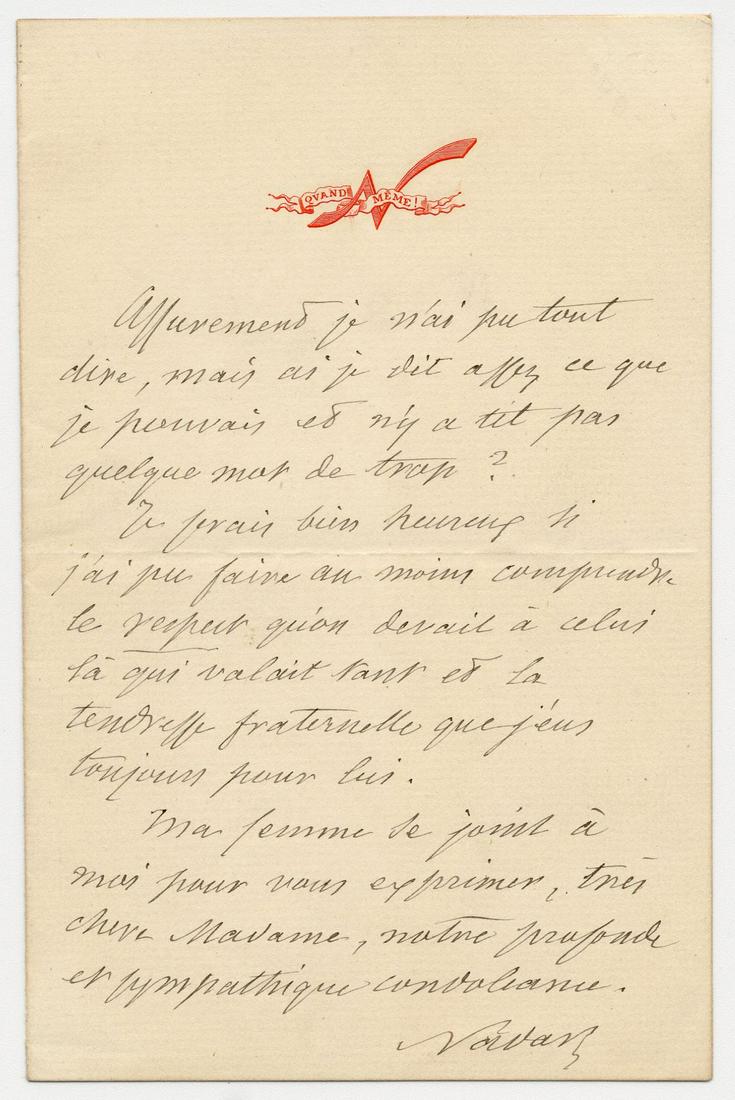 QUAND MÊME!
N
Assurement je n'ai pu tout
dire, mais ai je dit assez ce que
je pouvais et n'y a til pas
quelque mot de trop ?
Je serais bien heureux si
j'ai pu faire au moins comprendre
le respect qu'on devait à celui
là qui valait tant et la
tendresse fraternelle que j'eus
toujours pour lui.
Ma femme se joint à
moi pour vous exprimer, très
chere Madame, notre profonde
et sympathique condoleance.
Nadar